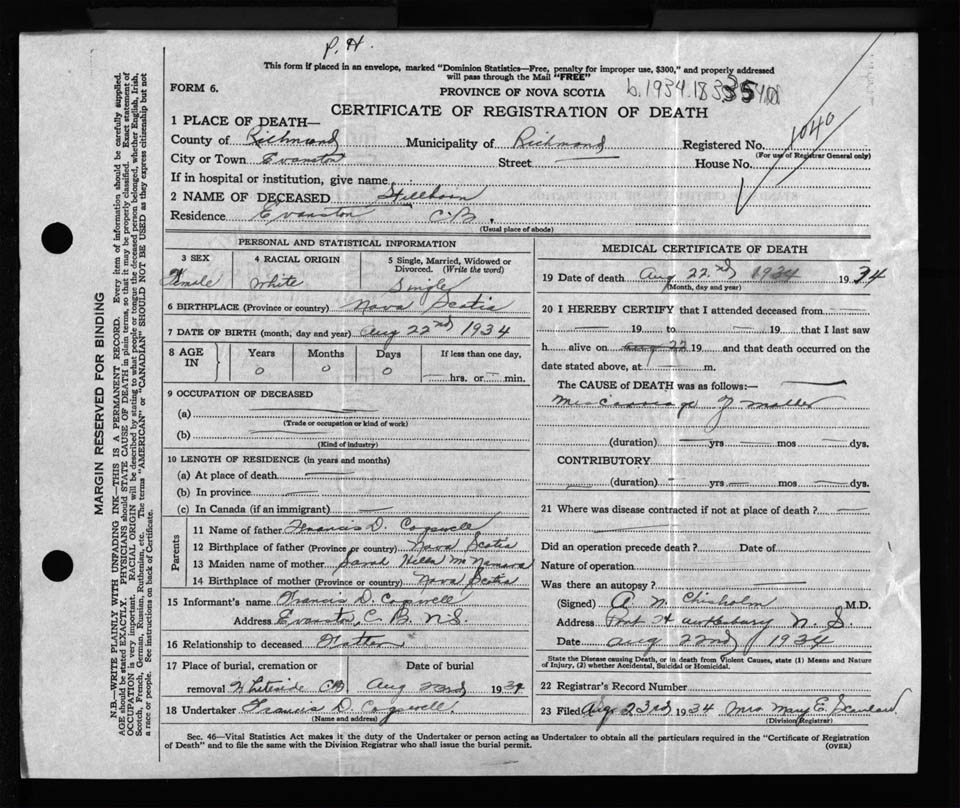 P. H.
This form if placed in an envelope, marked "Dominion Statistics—Free, penalty for improper use, $300," and properly addressed
will pass through the Mail "FREE"
FORM 6.
PROVINCE OF NOVA SCOTIA
b.1934.
CERTIFICATE OF REGISTRATION OF DEATH
1040
1 PLACE OF DEATH—
County of Richmond Municipality of Richmond Registered No.
(For use of Registrar General only)
City or Town Evanston Street — House No.
If in hospital or institution, give name
2 NAME OF DECEASED Stillborn
Residence Evanston C.B.
(Usual place of abode)
MARGIN RESERVED FOR BINDING
N.B.—WRITE PLAINLY WITH UNFADING INK—THIS IS A PERMANENT RECORD. Every item of information should be carefully supplied.
AGE should be stated EXACTLY. PHYSICIANS should STATE CAUSE OF DEATH in plain terms, so that it may be properly classified. Exact statement of
OCCUPATION is very important. RACIAL ORIGIN will be described by stating to what people or tongue the deceased person belonged, whether English, Irish,
Scotch, French, German, Russian, Ruthenian, etc. The terms "AMERICAN" or "CANADIAN" SHOULD NOT BE USED as they express citizenship but not
a race or people. See instructions on back of Certificate.
PERSONAL AND STATISTICAL INFORMATION
3 SEX
Female
4 RACIAL ORIGIN
White
5 Single, Married, Widowed or
Divorced. (Write the word)
Single
6 BIRTHPLACE (Province or country) Nova Scotia
7 DATE OF BIRTH (month, day and year) Aug 22nd 1934
8 AGE
IN
Years
0
Months
0
Days
0
If less than one day,
— hrs. or — min.
9 OCCUPATION OF DECEASED
(a)
(Trade or occupation or kind of work)
(b)
(Kind of industry)
10 LENGTH OF RESIDENCE (in years and months)
(a) At place of death
(b) In province
(c) In Canada (if an immigrant)
Parents
11 Name of father Francis D. Cogswell
12 Birthplace of father (Province or country) Nova Scotia
13 Maiden name of mother Sarah McNamara
14 Birthplace of mother (Province or country) Nova Scotia
15 Informant's name Francis D. Cogswell
Address Evanston, C. B. N.S.
16 Relationship to deceased Father
17 Place of burial, cremation or Date of burial
removal Whiteside CB Aug 23rd 1934
18 Undertaker Francis D. Cogswell.
(Name and address)
MEDICAL CERTIFICATE OF DEATH
19 Date of death Aug 22nd 1934 1934
(Month, day and year)
20 I HEREBY CERTIFY that I attended deceased from —
— 19 — to — 19 — that I last saw
h alive on Aug 22 19 and that death occurred on the
date stated above, at — m.
The CAUSE OF DEATH was as follows:—
Miscarriage of mother
(duration) — yrs — mos — dys.
CONTRIBUTORY
(duration) — yrs — mos — dys.
21 Where was disease contracted if not at place of death? —
Did an operation precede death? Date of
Nature of operation
Was there an autopsy?
(Signed) A. N. Chisholm M.D.
Address Port Hawkesbury N. S.
Date Aug 22nd 1934
State the Disease causing Death, or in death from Violent Causes, state (1) Means and Nature
of Injury, (2) whether Accidental, Suicidal or Homicidal.
22 Registrar's Record Number
23 Filed Aug 23rd 1934 Mrs Mary E.
(Division Registrar)
Sec. 46—Vital Statistics Act makes it the duty of the Undertaker or person acting as Undertaker to obtain all the particulars required in the "Certificate of Registration
of Death" and to file the same with the Division Registrar who shall issue the burial permit.
(OVER)